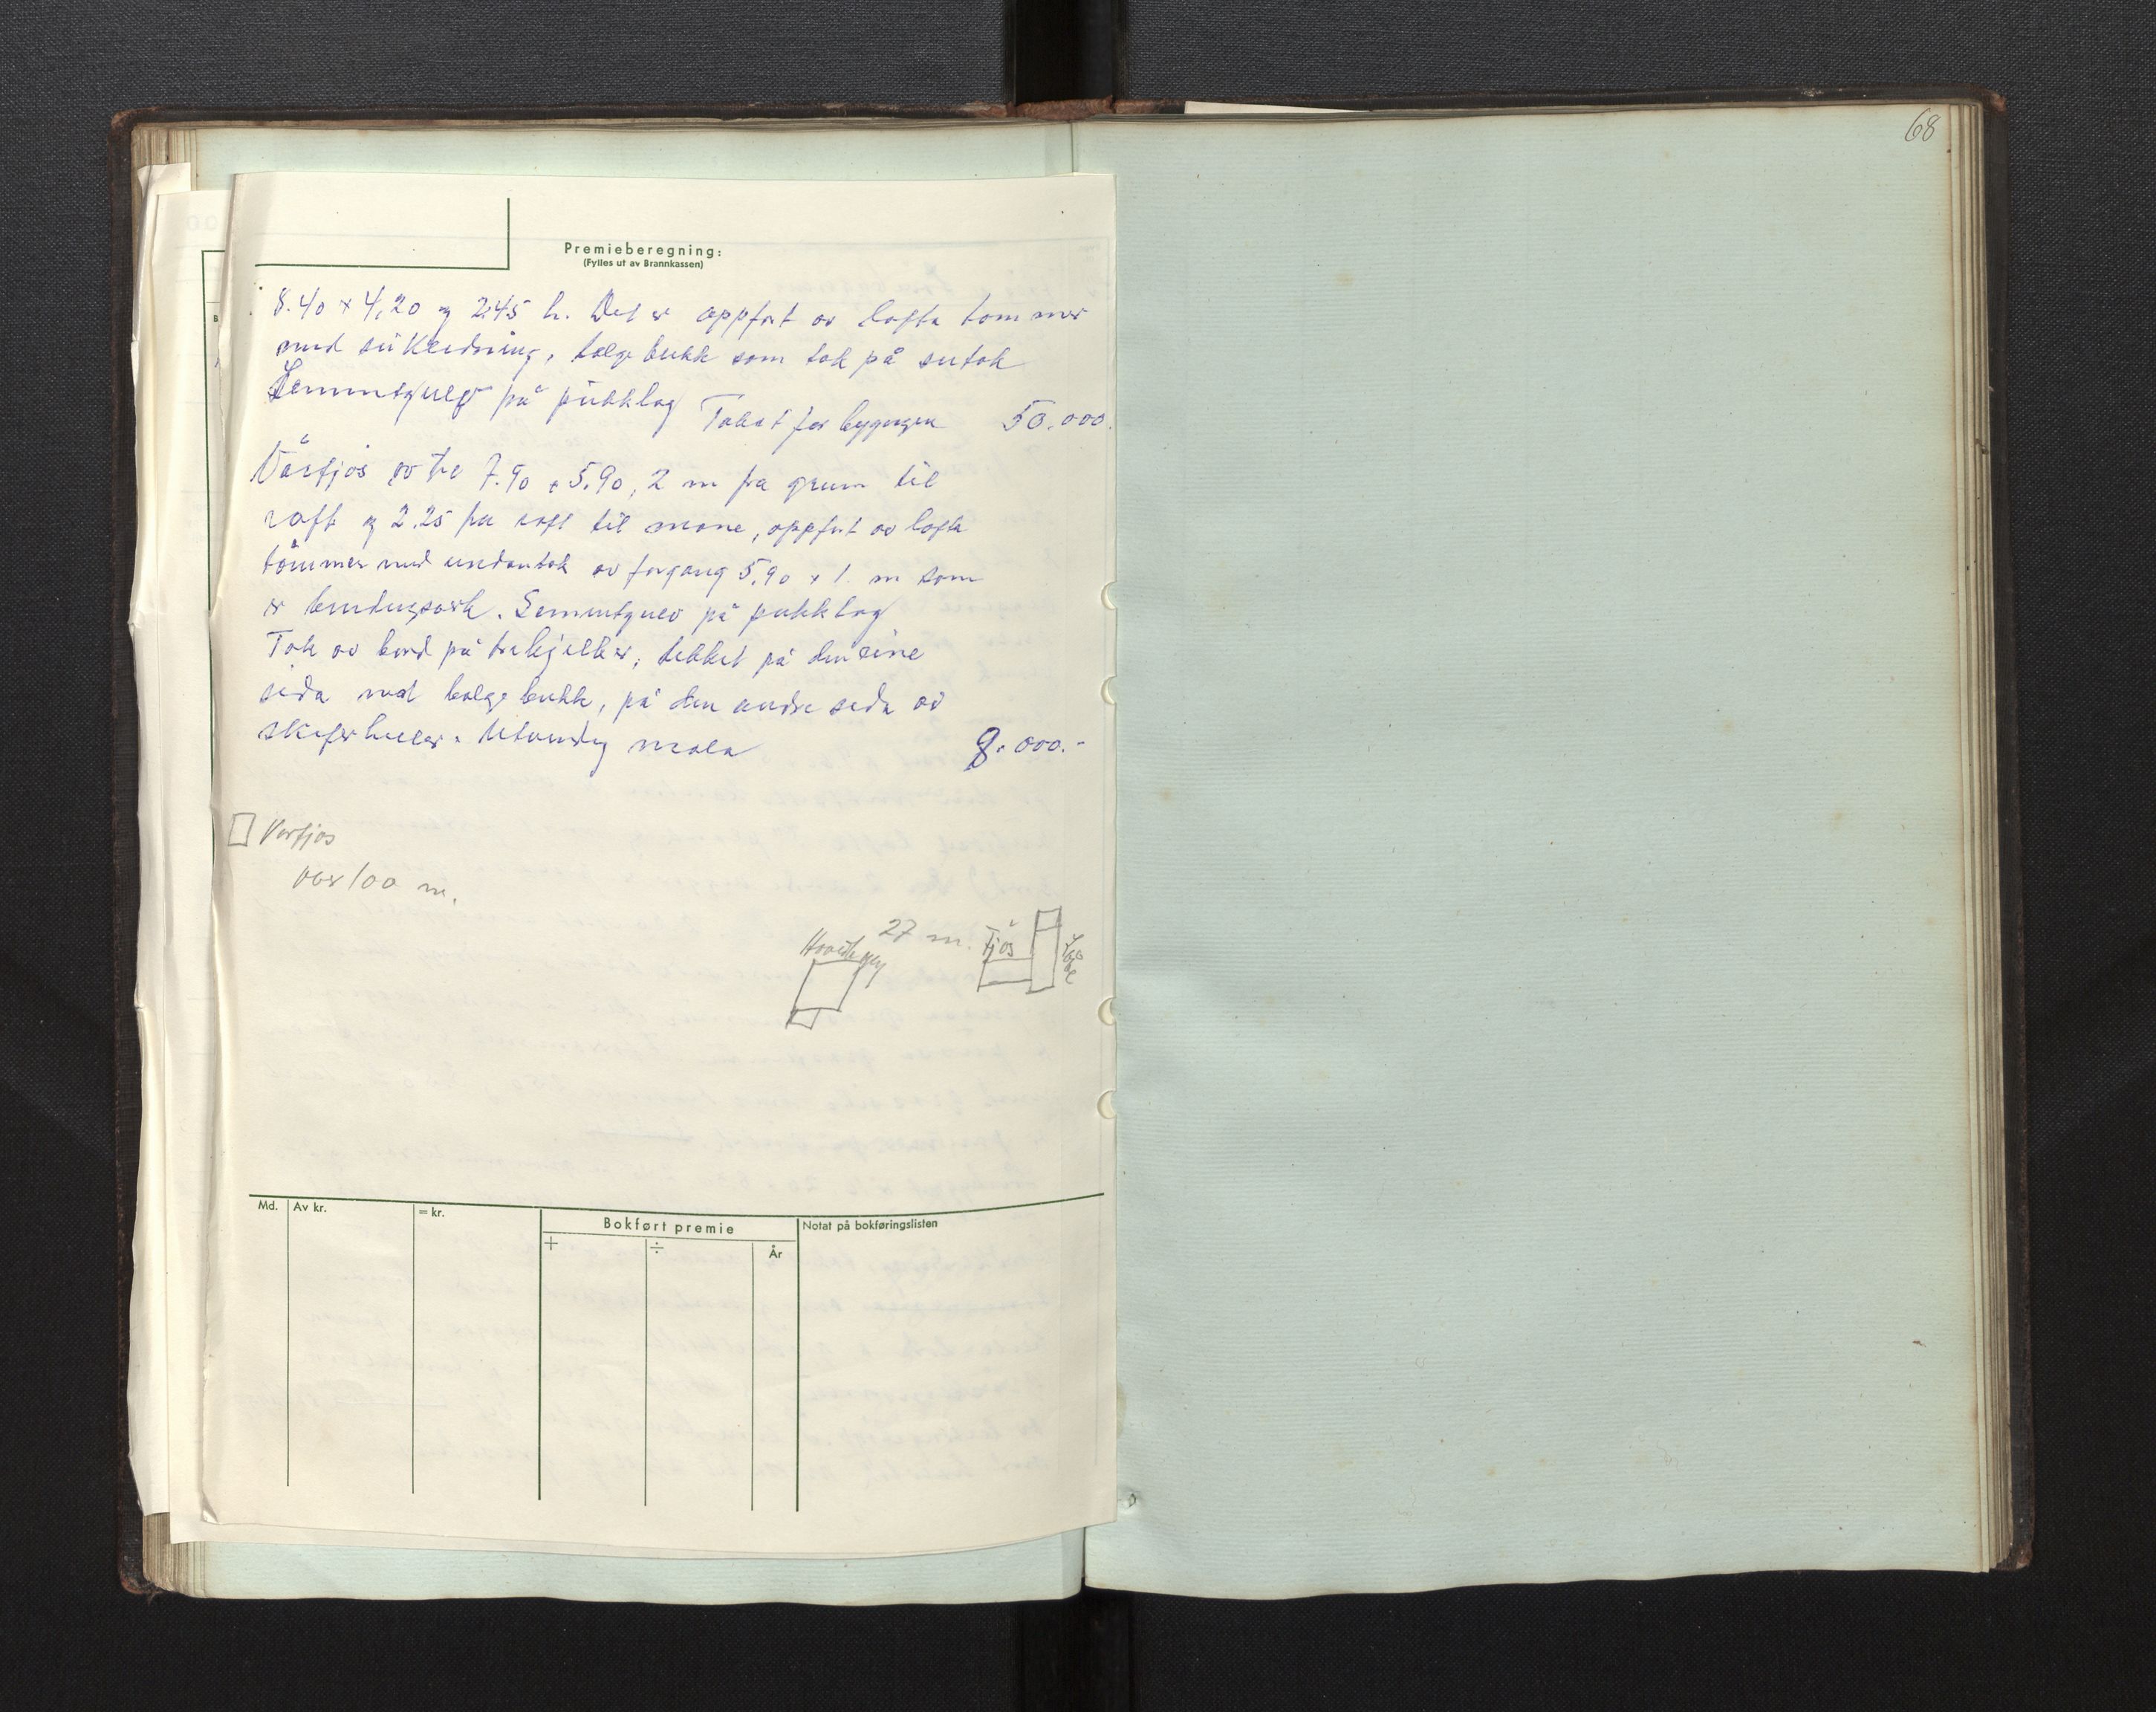 68
Premieberegning:
(Fylles ut av Brannkassen)
8.40 x 4,20 og 2.45 h. Det er oppført av lafta tømmer
med sukledning, bølgeblikk som tak på sutak
Sementgulv på pukklag
Takst for bygningen 50.000.
Vårfjøs av tre 7.90 x 5.90, 2 m fra grunn til
raft og 2.25 fra raft til møne, oppført av lafta
tømmer med undantak av forgang 5,90 x 1 m som
er bindingsverk. Sementgulv på pukklag
Tak av bord på trebjelker, tekket på den eine
sida med bølgeblikk, på den andre sida av
skiferheller. Utvendig mala
8.000.-
Vårfjøs
over 100 m.
27 m.
Fjøs
Md.
Av kr.
= kr.
Bokført premie
+
÷
År
Notat på bokføringslisten